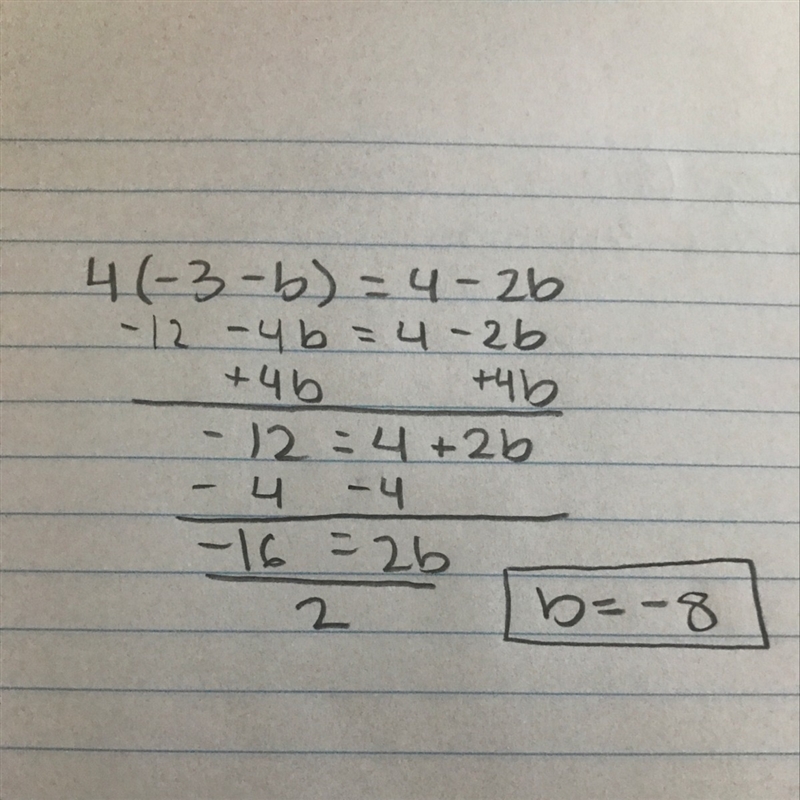 4(-3-b) = 4-2b
-12 -4b = 4-2b
+4b +4b
-12 = 4+2b
- 4 -4
-16 = 2b
2
b=-8